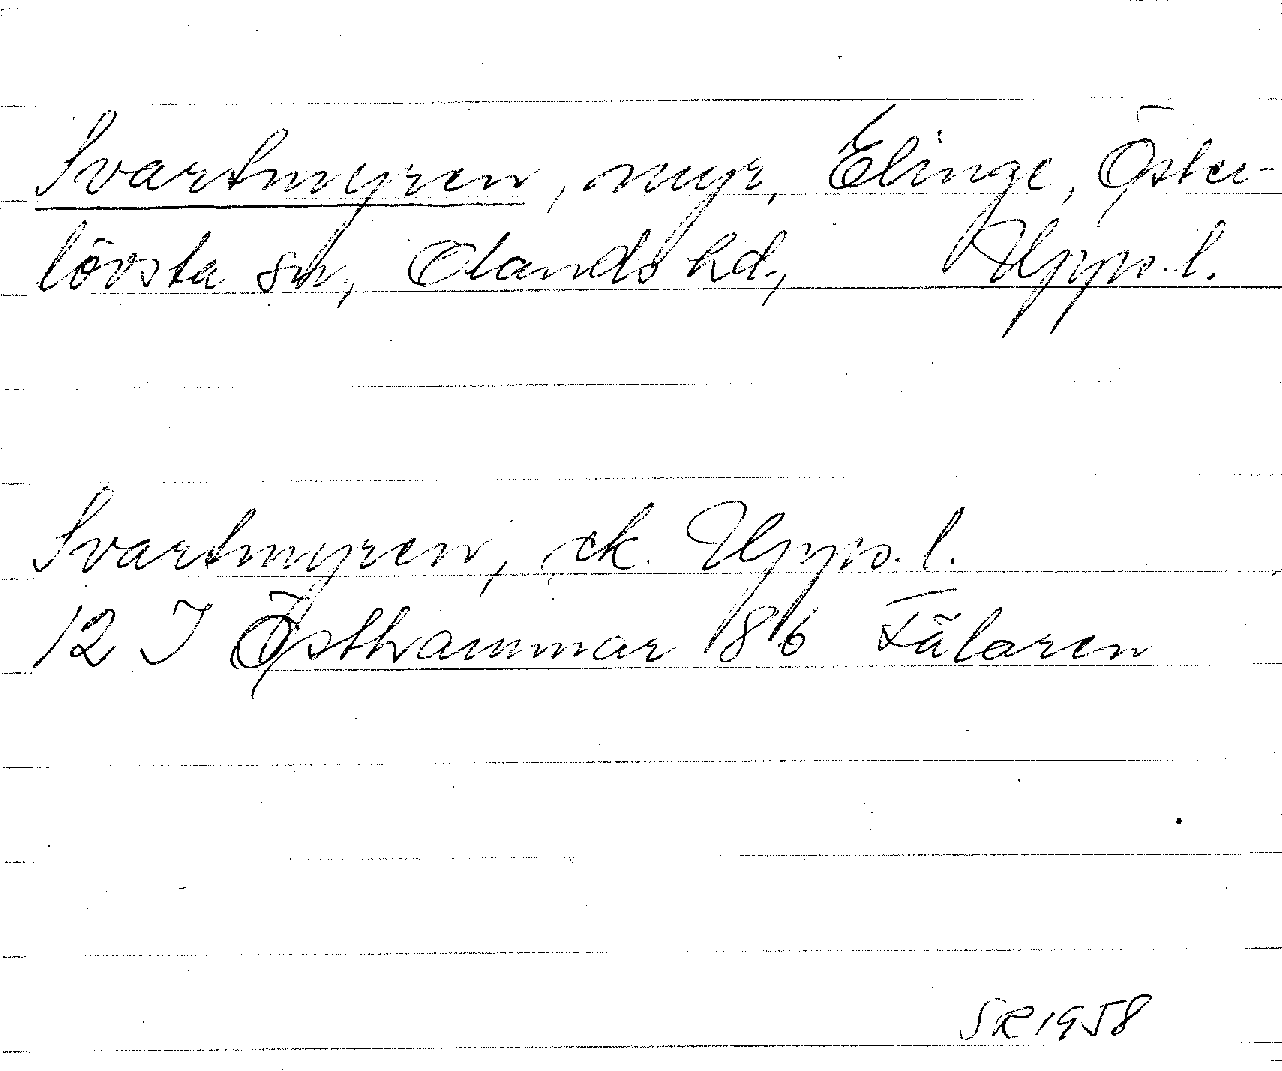 Svartmyren, myr, Elinge, Öster-
lövsta sn, Olands hd, Upps. l.
Svartmyren, ek. Upps. l.
12 I Östhammar 8 b Fälaren
SR 1958